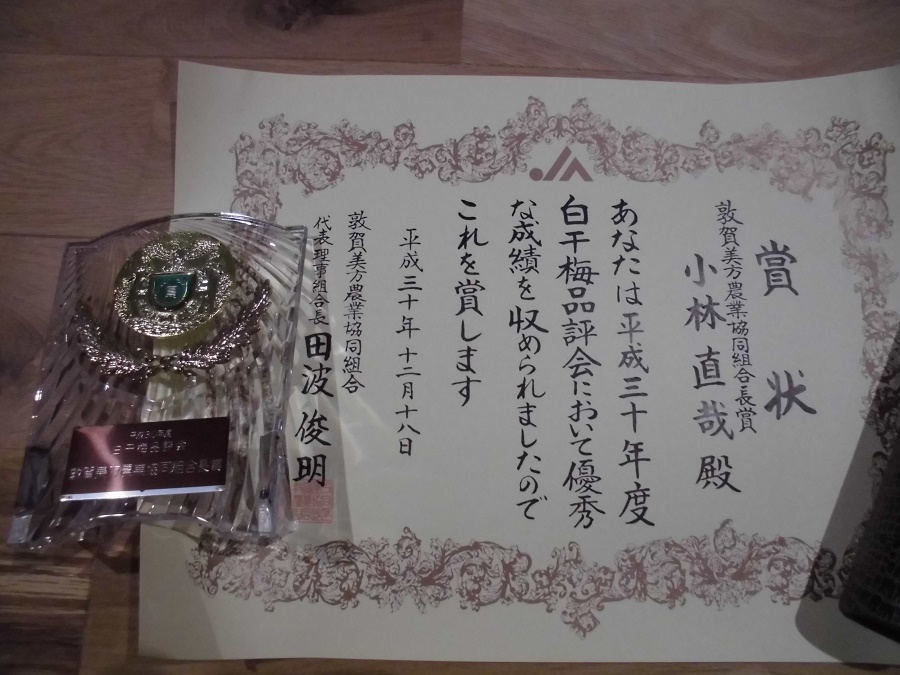 賞状
敦賀美方農業協同組合長賞
小林直哉殿
あなたは平成三十年度
白干梅品評会において優秀
な成績を収められましたので
これを賞します
平成三十年十二月十八日
敦賀美方農業協同組合
代表理事組合長 田波俊明
JA
平成30年度
白干梅品評会
敦賀美方農業協同組合長賞